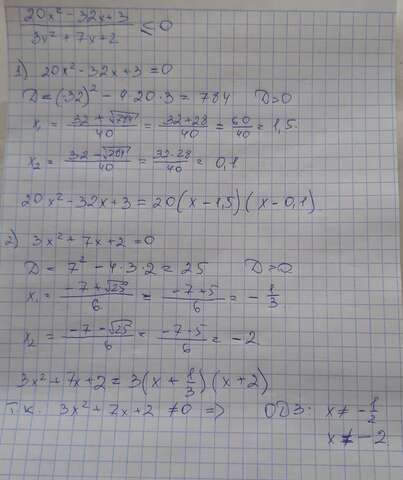 (20x² - 32x + 3)/(3x² + 7x + 2) ≤ 0
1) 20x² - 32x + 3 = 0
D = (32)² - 4·20·3 = 784 D>0
x₁ = (32 + √784)/40 = (32+28)/40 = 60/40 = 1,5
x₂ = (32 - √784)/40 = (32-28)/40 = 0,1
20x² - 32x + 3 = 20(x - 1,5)(x - 0,1)
2) 3x² + 7x + 2 = 0
D = 7² - 4·3·2 = 25 D>0
x₁ = (-7 + √25)/6 = (-7+5)/6 = -1/3
x₂ = (-7 - √25)/6 = (-7-5)/6 = -2
3x² + 7x + 2 = 3(x + 1/3)(x + 2)
Т.к. 3x² + 7x + 2 ≠ 0 => ОДЗ: x ≠ -1/2
x ≠ -2